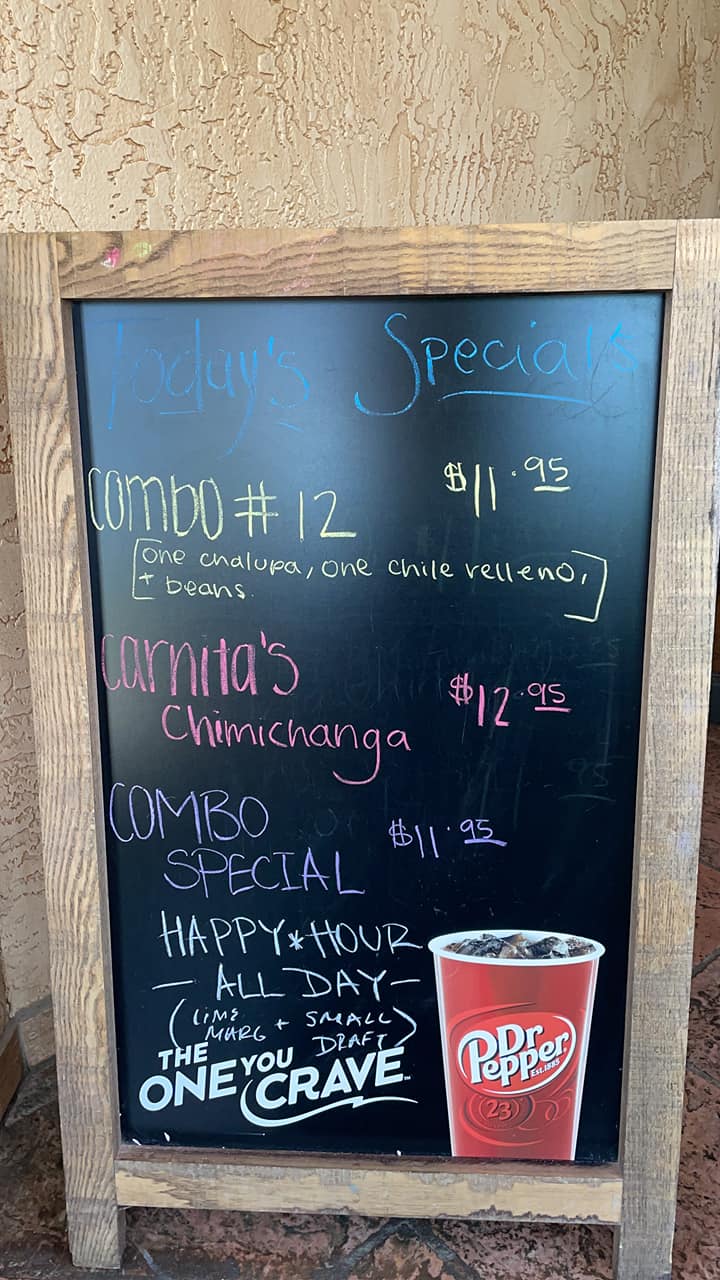 Today's Specials
Combo # 12 $11.95
[one chalupa, one chile relleno,
+ beans.]
Carnita's
Chimichanga $12.95
COMBO
SPECIAL $11.95
HAPPY*HOUR
- ALL DAY -
(LIME MARG + SMALL DRAFT)
THE
ONE YOU
CRAVE
Dr
Pepper
Est.1885
23